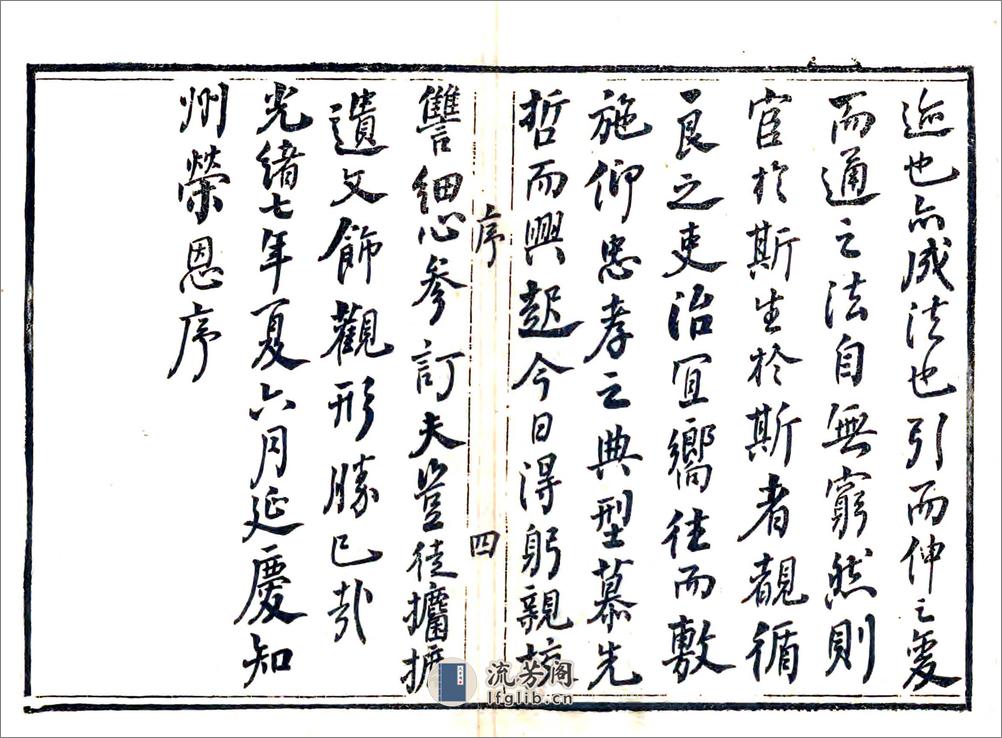 迹也亦成法也引而伸之变
而通之法自無窮然則
官於斯生於斯者覩循
良之吏治宜嚮往而敷
施仰忠孝之典型慕先
哲而興起今日得躬親挍
序
四
讐細心参訂夫豈徒攟摭
遺文飾觀形勝已哉
光緒七年夏六月延慶知
州榮恩序
流芳阁
lfglib.cn